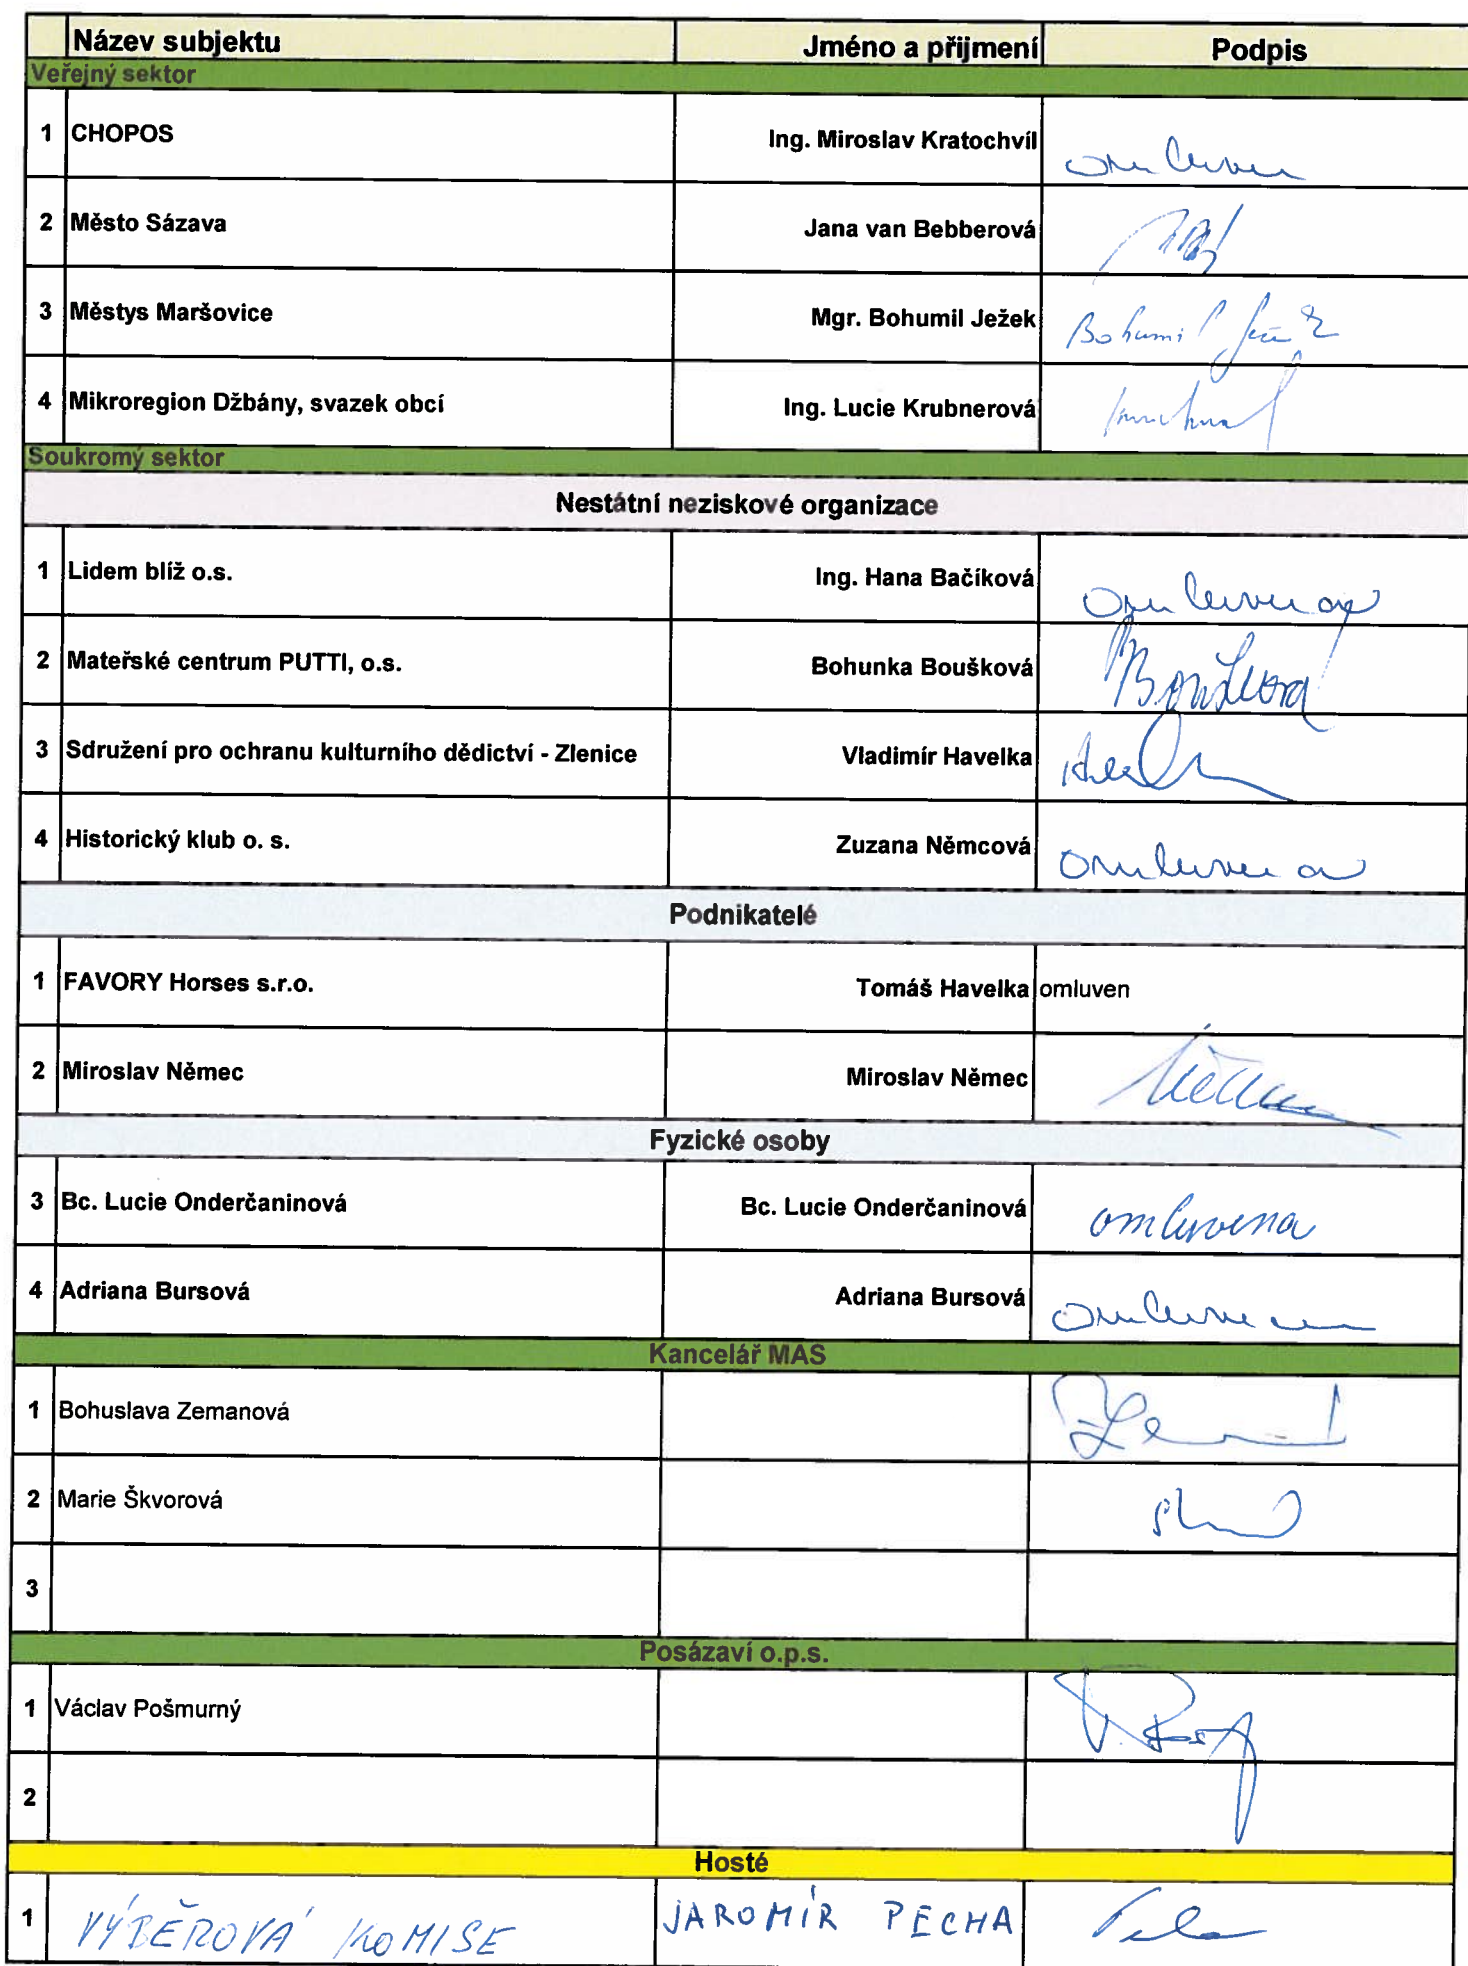 Název subjektu Jméno a přijmení Podpis
Veřejný sektor
1 CHOPOS Ing. Miroslav Kratochvíl omluven
2 Město Sázava Jana van Bebberová
3 Městys Maršovice Mgr. Bohumil Ježek Bohumil Ježek
4 Mikroregion Džbány, svazek obcí Ing. Lucie Krubnerová
Soukromý sektor
Nestátní neziskové organizace
1 Lidem blíž o.s. Ing. Hana Bačíková omluvena
2 Mateřské centrum PUTTI, o.s. Bohunka Boušková Boušková
3 Sdružení pro ochranu kulturního dědictví - Zlenice Vladimír Havelka
4 Historický klub o. s. Zuzana Němcová omluvena
Podnikatelé
1 FAVORY Horses s.r.o. Tomáš Havelka omluven
2 Miroslav Němec Miroslav Němec
Fyzické osoby
3 Bc. Lucie Onderčaninová Bc. Lucie Onderčaninová omluvena
4 Adriana Bursová Adriana Bursová omluvena
Kancelář MAS
1 Bohuslava Zemanová
2 Marie Škvorová
3
Posázaví o.p.s.
1 Václav Pošmurný
2
Hosté
1 VÝBĚROVÁ KOMISE JAROMÍR PECHA